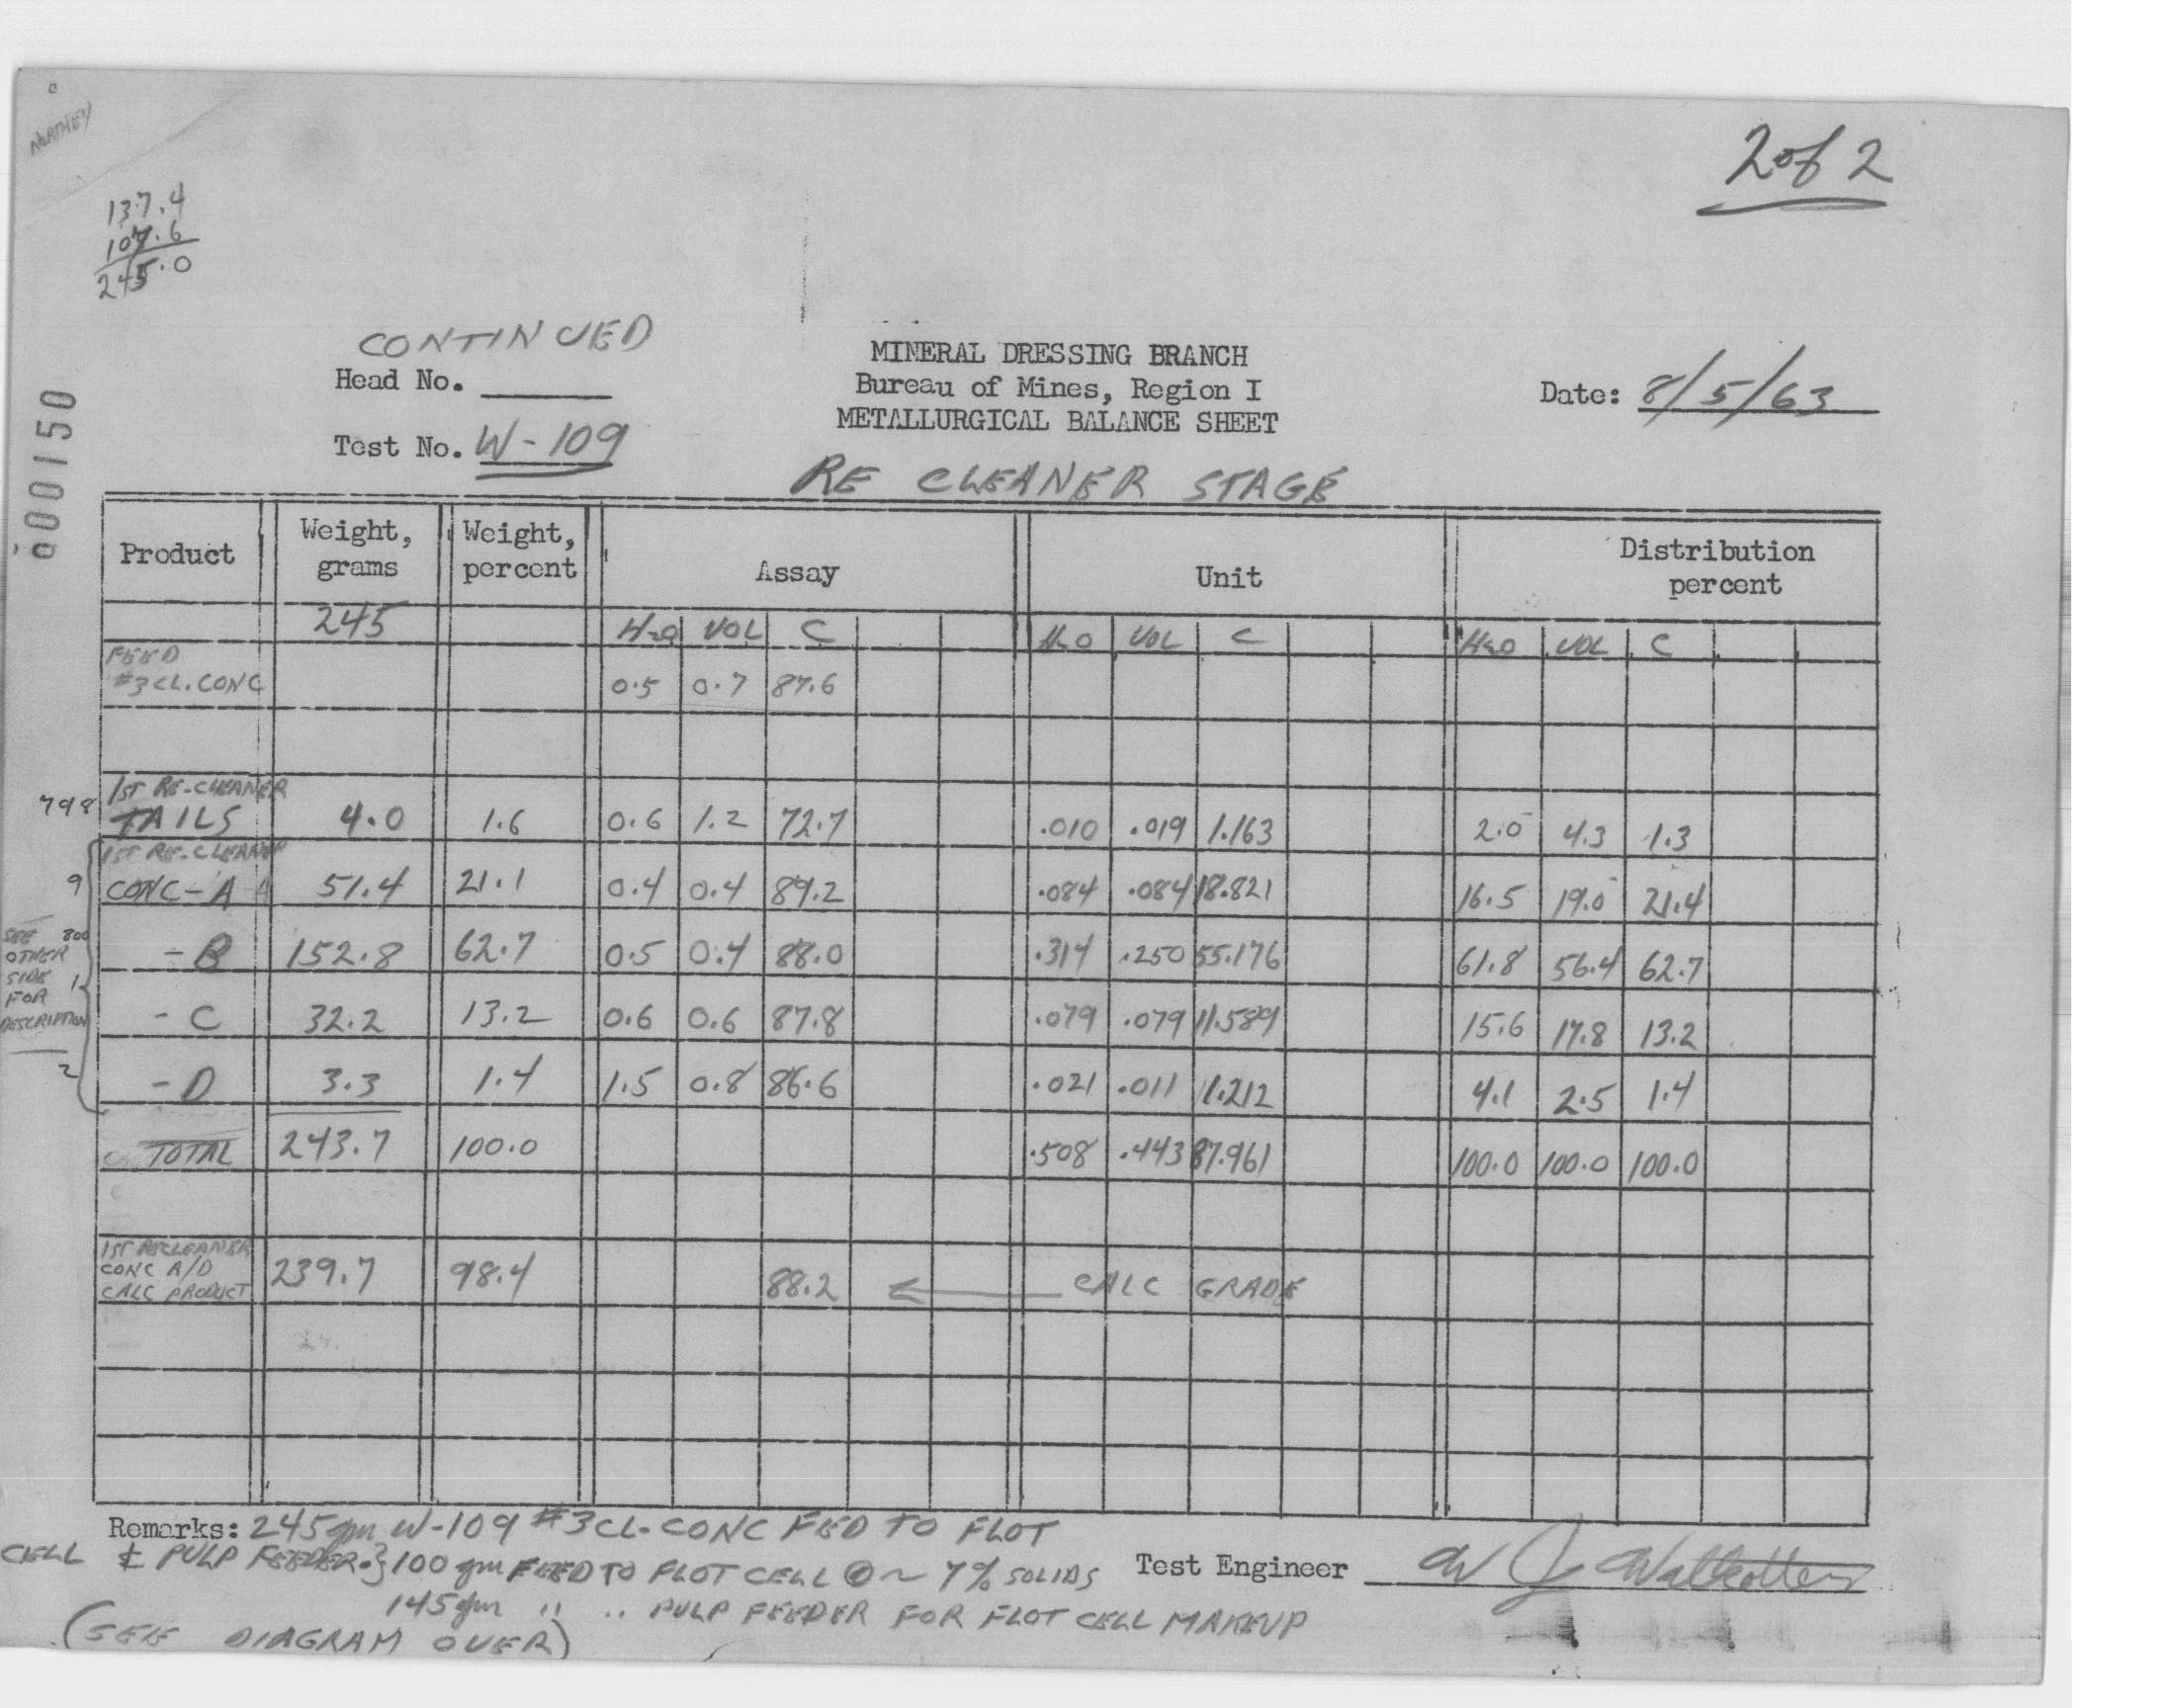 NORTHEY
2 of 2
137.4
107.6
245.0
CONTINUED
Head No.
Test No. W-109
MINERAL DRESSING BRANCH
Bureau of Mines, Region I
METALLURGICAL BALANCE SHEET
Date: 8/5/63
000150
RE CLEANER STAGE
Product Weight, grams Weight, percent Assay Unit Distribution percent
245 H2O VOL C H2O VOL C H2O VOL C
FEED
#3 CL. CONC 0.5 0.7 87.6
1ST RE-CLEANER
798 TAILS 4.0 1.6 0.6 1.2 72.7 .010 .019 1.163 2.0 4.3 1.3
1ST RE-CLEANER
9 CONC-A 51.4 21.1 0.4 0.4 89.2 .084 .084 18.821 16.5 19.0 21.4
800 -B 152.8 62.7 0.5 0.4 88.0 .314 .250 55.176 61.8 56.4 62.7
1 -C 32.2 13.2 0.6 0.6 87.8 .079 .079 11.589 15.6 17.8 13.2
2 -D 3.3 1.4 1.5 0.8 86.6 .021 .011 1.212 4.1 2.5 1.4
SEE
OTHER
SIDE
FOR
DESCRIPTION
TOTAL 243.7 100.0 .508 .443 87.961 100.0 100.0 100.0
1ST RECLEANER
CONC A/D
CALC PRODUCT 239.7 98.4 88.2 ← CALC GRADE
Remarks: 245 gm W-109 #3 CL. CONC FED TO FLOT
CELL & PULP FEEDER.} 100 gm FEED TO FLOT CELL @ ~ 7% SOLIDS
145 gm " " PULP FEEDER FOR FLOT CELL MAKEUP
(SEE DIAGRAM OVER)
Test Engineer W J Walkotten